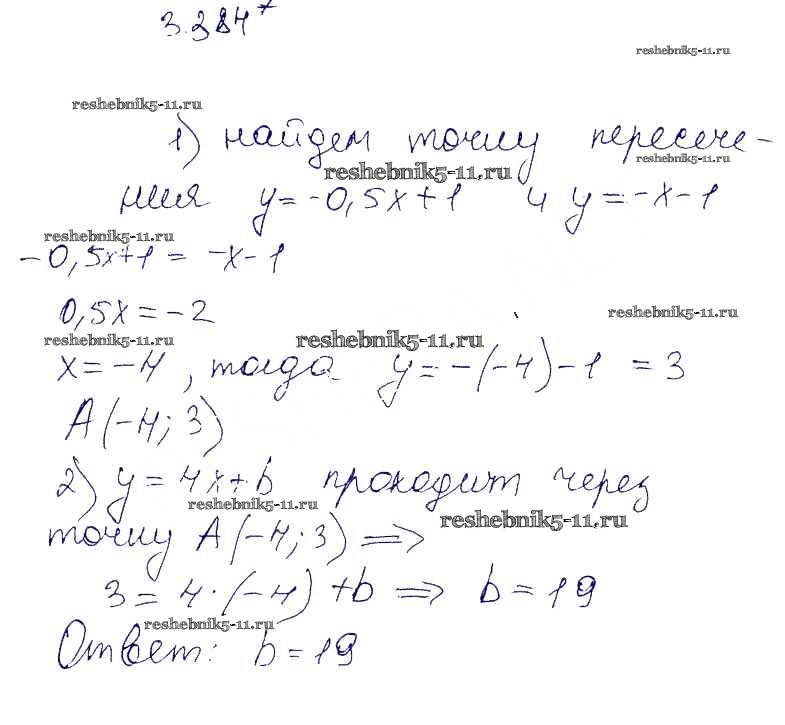 3.284*
reshebnik5-11.ru
reshebnik5-11.ru
1) найдем точку пересече-
reshebnik5-11.ru reshebnik5-11.ru
ния y=-0,5x+1 и y=-x-1
reshebnik5-11.ru
-0,5x+1= -x-1
0,5x=-2 reshebnik5-11.ru
reshebnik5-11.ru reshebnik5-11.ru
x=-4, тогда y=-(-4)-1 =3
A(-4; 3)
2) y=4x+b проходит через
reshebnik5-11.ru reshebnik5-11.ru
точку A(-4; 3) =>
3=4·(-4)+b => b=19
reshebnik5-11.ru
Ответ: b=19